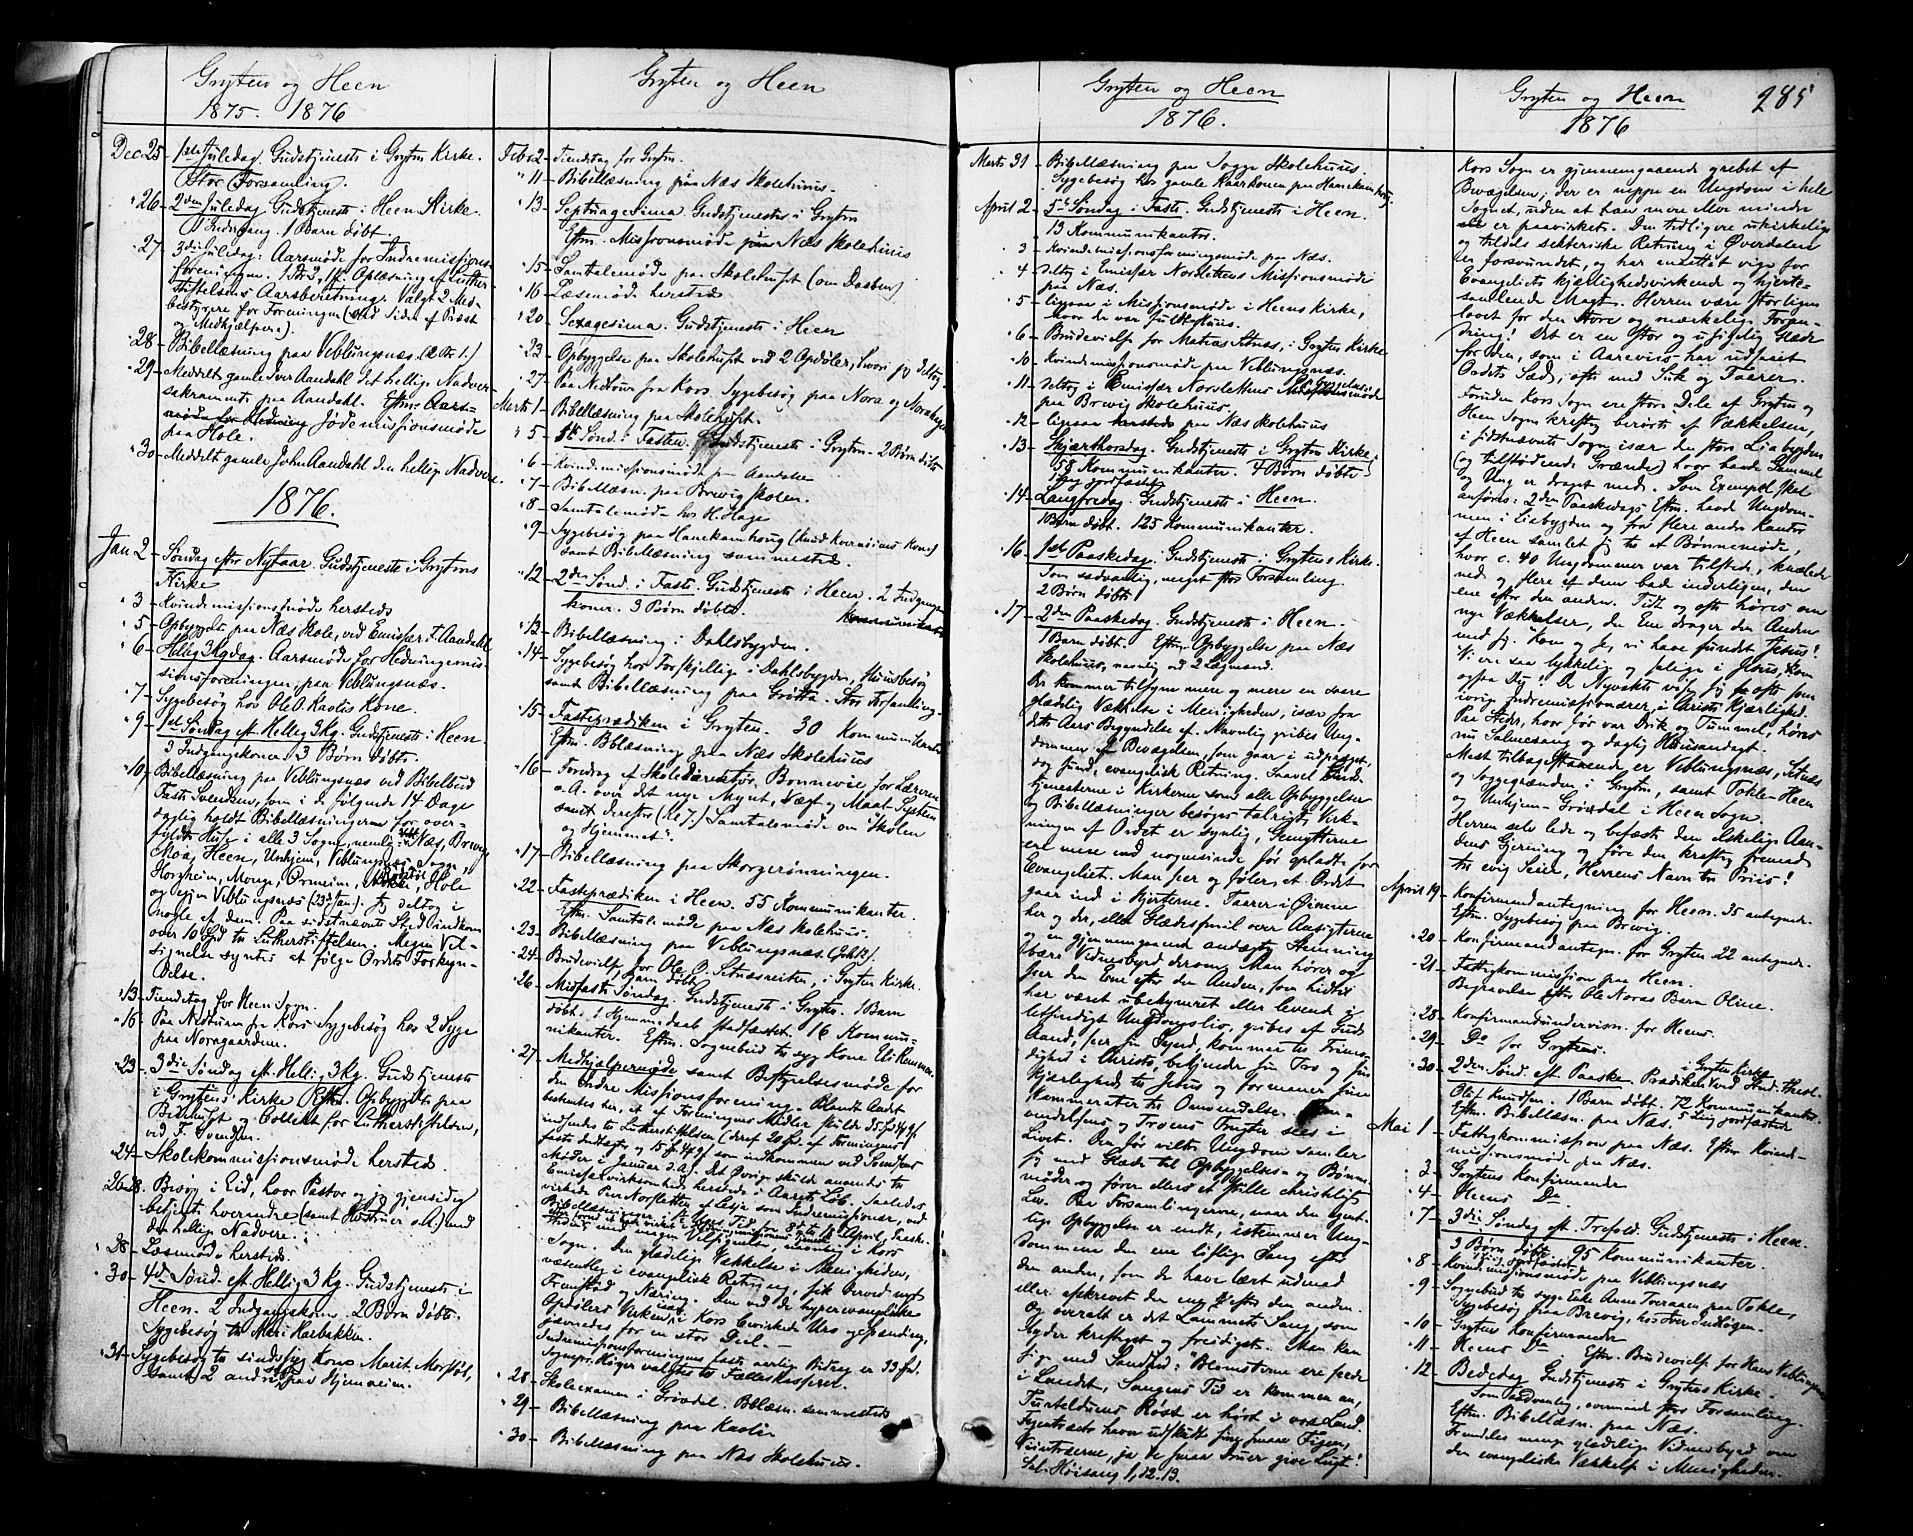 Grytten og Heen
1875. 1876
Dec. 25 - 1ste Juledag. Gudstjeneste i Gryttens Kirke.
Stor Forsamling.
" 26 - 2den Juledag Gudstjeneste i Heen Kirke.
1 Indgang. 1 Barn døbt.
" 27 - 3die Juledag: Aarsmøde for Indremissions-
foreningen. Oplæsning af Luther-
stiftelsens Aarsberetning. Valgt 2 Med-
bestyrere for Foreningen (ved Siden af Præst
og Medhjælpere).
" 28 - Bibellæsning paa Veblungsnæs.
" 29 - Meddelt gamle Iver Aandahl det hellige Nadver-
sakramente paa Aandahl. Eftm. Aars-
møde for Hedning Jødemissionsmøde
paa Hole.
" 30 - Meddelt gamle John Aandahl den hellige Nadvere.
1876.
Jan 2 - Søndag efter Nytaar. Gudstjeneste i Gryttens
Kirke
" 3 - Kvindemissionsmøde hersteds
" 5 - Opbyggelse paa Næs Skole, ved Emissær T. Aandahl
" 6 - Hellig 3 Kg dag. Aarsmøde for Hedningemis-
sionsforeningen, paa Veblungsnæs.
" 7 - Sygebesøg hos Ole O. Kavlis Kone.
" 9 - 1ste Søndag eft. Hellig 3 Kg. Gudstjeneste i Heen.
3 Indgangskoner. 3 Børn døbte.
" 10 - Bibellæsning paa Veblungsnæs ved Bibelbud
Svendsen, som i de følgende 14 Dage
daglig holdt Bibellæsninger for over-
fyldte Huse i alle 3 Sogn, nemlig: Næs, Brevig
Moa, Heen, Unhjem, Veblungsnæs Sogn,
Horgheim, Monge, Ormeim, Hole
og igjen Veblungsnæs (23de Jan.). Jeg deltog i
nogle af dem. Paa sidstnævnte Sted indkom
over 10 Spd til Lutherstiftelsen. Megen Vel-
signelse syntes at følge Ordets Forkyn-
delse.
" 13 - Tiendetag for Heen Sogn.
" 16 - Paa Nedturen fra Kors Sygebesøg hos 2 Syge
paa Noragaardene.
" 23 - 3die Søndag eft. Hellig 3 Kg. Gudstjeneste
i Gryttens Kirke Eftm. Opbyggelse paa
Bedehuset og Collekt for Lutherstiftelsen,
ved F. Svendsen.
" 24 - Skolekommissionsmøde hersteds.
26 Besøg i Eid, hvor Pastor og jeg gjensidig
betjente hverandre (samt Hustruer o.A.) med
den hellige Nadvere.
" 28 - Læsemøde hersteds.
" 30 - 4de Sønd. eft. Hellig 3 Kg. Gudstjeneste i
Heen. 2 Indgangskoner. 2 Børn døbte.
Sygebesøg til Mari Haebakken.
" 31 - Sygebesøg til sindssyg Kone Marit Morstøl,
samt 2 andre paa Hjemmeim.
Grytten og Heen
Febr. 2 - Tiendetag for Grytten.
" 11 - Bibellæsning paa Næs Skolehuus.
" 13 - Septuagesima. Gudstjeneste i Grytten
Eftm. Missionsmøde paa Næs Skolehuus
" 15 - Samtalemøde paa Skolehuset (om Daaben)
" 16 - Læsemøde hersteds
" 20 - Sexagesima. Gudstjeneste i Heen
" 23 - Opbyggelse paa Skolehuset ved 2 Opdøler, hvori jeg deltog.
" 27 - Paa Nedturen fra Kors Sygebesøg paa Nora og Norahagen
Marts 1 - Bibellæsning paa Skolehuset.
" 5 - 1ste Sønd. i Fasten. Gudstjeneste i Grytten. 2 Børn døbte
" 6 - Kvindemissionsmøde paa Aandahl
" 7 - Bibellæsn. paa Brevig Skolen.
" 8 - Samtalemøde hos H. Hage
" 9 - Sygebesøg paa Hanekamhoug (Knud Kvernsiens Kone)
samt Bibellæsning sammesteds.
" 12 - 2den Sønd. i Faste. Gudstjeneste i Heen. 2 Indgangs-
koner. 3 Børn døbte. Kommunikanter
" 13 - Bibellæsning i Dahlsbygden.
" 14 - Sygebesøg hos Forskjellige i Dahlsbygden, Huusbesøg
samt Bibellæsning paa Grøtta. Stor Forsamling.
" 15 - Fasteprædiken i Grytten. 30 Kommunikanter
Eftm. Bbllæsning paa Næs Skolehuus
" 16 - Foredrag af Skoledirektør Bonnevie for Lærerne
o.A. over det nye Mynt, Vægt og Maal System
samt derefter (Kl 7.) Samtalemøde om "Skolen
og Hjemmet".
" 17 - Bibellæsning paa Skorgerønningen.
" 22 - Fasteprædiken i Heen. 55 Kommunikanter.
Eftm. Samtalemøde paa Næs Skolehuus.
" 23 - Bibellæsning paa Veblungsnæs.
" 24 - Brudevielse for Ole O. Setnæsreiten, i Grytten Kirke.
" 26 - Midfaste Søndag. Gudstjeneste i Grytten. 1 Barn
døbt. 1 Hjemmedaab stadfæstet. 16 Kommu-
nikanter. Eftm. Sognebud til syg Kone Eli Remmem.
" 27 - Medhjælpermøde samt Bestyrelsesmøde for
den Indre Missionsforening. Blandt Andet
bestemtes her, at af Foreningens Midler skulde
indsendes til Lutherstiftelsen (deraf 20 Spd. af Foreningens
faste Indtægt og 15 som indkommen ved Svendsens
Møder i Januar d.A.). Det Øvrige skulde anvendes til
Emissærvirksomhed hersteds i Aarets Løb. Saaledes
virkede Peer Norsletten af Lesje som Indremissionær, ved
Bibellæsninger i Tid fra 8de til 18de April,
Sogn. Den glædelige Vækkelse i Menigheden,
væsentlig i evangelisk Retning, fik derved nyt
Fremstød og Næring. Den ved de hyperevangeliske
Opdølers Virken i Kors bevirkede Uro og Spænding,
jævnedes for en stor Deel. -
Indremissionsforeningens faste aarlige Bidrag er 33
Sognepr. Krüger valgtes til Fælleskasserer.
" 28 - Skoleexamen i Grøvdal. Bblæsn. sammesteds
" 29 - Bibellæsning paa Kavli
" 30 - Bibellæsning paa Næs Skolehuus.
Grytten og Heen
1876.
Marts 31 - Bibellæsning paa Sogge Skolehuus
Sygebesøg hos gamle Kaarkonen paa Hanekamhoug
April 2 - 5te Søndag i Faste. Gudstjeneste i Heen.
13 Kommunikanter.
" 3 - Kvindemissionsforeningsmøde paa Næs.
" 4 - deltog i Emissær Norslettens Missionsmøde
paa Næs.
" 5 - ligesaa i Missionsmøde i Heens Kirke,
hvor der var fuldt Huus.
" 6 - Brudevielse for Mathias Setnæs, i Gryttens Kirke
" 10 - Kvindemissionsmøde paa Veblungsnæs.
" 11 - deltog i Emissær Norslettens Opbyggelse
paa Brevig Skolehuus.
" 12 - ligesaa hersteds paa Næs Skolehuus
" 13 - Skjærthorsdag. Gudstjeneste i Gryttens Kirke.
58 Kommunikanter. 4 Børn døbte
1 Lig jordfæstet
" 14 - Langfredag. Gudstjeneste i Heen.
1 Barn døbt. 125 Kommunikanter.
" 16 - 1ste Paaskedag. Gudstjeneste i Gryttens Kirke.
Som sædvanlig, meget stor Forsamling.
2 Børn døbte.
" 17 - 2den Paaskedag. Gudstjeneste i Heen.
1 Barn døbt. Eftm. Opbyggelse paa Næs
Skolehuus, navnlig ved 2 Lægmænd.
Der kommer tilsyne mere og mere en saare
glædelig Vækkelse i Menigheden, især fra
dette Aars Begyndelse af. Navnlig gribes Ung-
dommen af Bevægelsen, som gaar i udpræget,
dog sund, evangelisk Retning. Saavel Guds-
tjenesterne i Kirkerne som alle Opbyggelser
og Bibellæsninger besøges talrigt. Virk-
ningen af Ordet er synlig, Gemytterne
ere mere end nogensinde før opladte for
Evangeliet. Man ser og føler, at Ordet
gaar ind i Hjerterne. Taarer i Øinene
her og der, eller Glædesspeil over Ansigterne
og en gjennemgaaende andægtig Stemning
bære Vidnesbyrd derom. Man hører og
ser den Ene efter den Anden, som hidtil
har været ubekymret eller levende i
letfærdigt Ungdomsliv, gribes af Guds
Aand, ser sin Synd, kommer til Frimo-
dighed i Christo, bekjender sin Tro og sin
Kjærlighed til Jesus og formaner sine
Kammerater til Omvendelse. Om-
vendelsens og Troens Frugter sees i
Livet. Den før vilter Ungdom samler
sig med Glæde til Opbyggelses- og Bønne-
møder og fører ellers et stille christeligt
Lev. Paa Forsamlingerne, naar den egent-
lige Opbyggelse er endt, istemmer Ung-
dommene den ene liflige Sang efter
den anden, som de have lært udenad
eller afskrevet den ene efter den anden.
Og overalt er det Lammets Sang, som
lyder kraftigst og freidigst. Man kan
sige med Sandhed: "Blomsterne ere seede
i Landet, Sangens Tid er kommen an,
Turtelduens Røst er hørt i vort Land.
Figentræet haver udskudt sine smaae Figen,
Viintræerne, ja de smaa Druer give Lugt."
Sal. Høisang 1, 12. 13.
Grytten og Heen 285
1876
Kors Sogn er gjennemgaaende grebet af
Bevægelsen; der er neppe en Ungdom i hele
Sognet, uden at han mere eller mindre
er paavirket. Den tidligere ukirkelige
og tildels sekteriske Retning i Øverdalen
er forsvundet, og har maattet vige for
Evangeliets kjærlighedsvirkende og hjerte-
samlende Magt. Herren være storligen
lovet for den store og mærkelige Foran-
dring! Det er en stor og usigelig Glæde
for den, som i Aarevis har udsaaet
Ordets Sæd, ofte med Suk og Taarer.
Foruden Kors Sogn ere store Dele af Grytten og
Heen Sogn kraftig berørte af Vækkelsen,
i sidstnævnte Sogn især den store Liabygden
(og tilstødende Grænde) hvor baade Gammel
og Ung er draget med. Som Exempel skal
anføres: 2den Paaskedags Eftm. havde Ungdom-
men i Liabygden og fra flere andre Kanter
af Heen samlet sig til et Bønnemøde,
hvor c. 40 Ungdommer var tilstede, knælede
ned og flere af dem bade inderligen, den
ene efter den anden. Tidt og ofte høres om
nye Vækkelser, den Ene drager den Anden
med sig. "Kom og See, vi have fundet Jesus!
Vi ere saa lykkelig og salige i Jesus, kom
ogsaa Du!" De Nyvakte vise sig saa ofte som
ivrige Indremissionærer, i Christi Kjærlighed.
Paa Steder, hvor før var Drik og Tummel, høres
nu Salmesang og daglig Huusandagt.
Mest tilbagestaaende er Veblungsnæs, Setnæs
og Soggegrænden i Grytten, samt Tokle-Heen
og Unhjem-Grøvdal i Heen Sogn.
Herren selv lede og befæste den elskelige Aan-
dens Gjerning og føre den kraftig fremad
til evig Seier, Herrens Navn til Priis!
April 19 - Konfirmandantegning for Heen. 35 antegnede.
Eftm. Sygebesøg paa Brevig.
" 20 - Konfirmandantegn. for Grytten 22 antegnede.
" 21 - Fattigkommission paa Heen.
Begravelse efter Ole Noras Barn Oline.
" 28 - Konfirmandundervisn. for Heens.
" 29 - Do for Gryttens.
" 30 - 2den Sønd. eft. Paaske. Prædiken ved Stud. theol. i Grytten Kirke
Olaf Knudsen. 1 Barn døbt. 72 Kommunikanter.
Eftm. Bibellæsn. paa Næs. 5 Lig jordfæstede
Mai 1 - Fattigkommission paa Næs. Eftm Kvinde-
missionsmøde paa Næs.
" 3 - Gryttens Konfirmander
" 4 - Heens Do
" 7 - 3die Søndag eft. Gudstjeneste i Heen.
3 Børn døbte. 95 Kommunikanter.
" 8 - Kvindemissionsmøde paa Veblungsnæs
" 9 - Sognebud til syge Enke Anne Torraasen paa Tokle,
Sygebesøg paa Brevig, hos Iver
" 10 - Gryttens Konfirmander
" 11 - Heens Do Eftm. Brudevielse for Hans Veblungsnæs
" 12 - Bededag Gudstjeneste i Gryttens Kirke.
Som sædvanlig, overmaade stor Forsamling.
Eftm. Bibellæsn. paa Næs.
Fremdeles mange glædelige Vidnesbyrd om
den evangeliske Vækkelse i Menigheden.